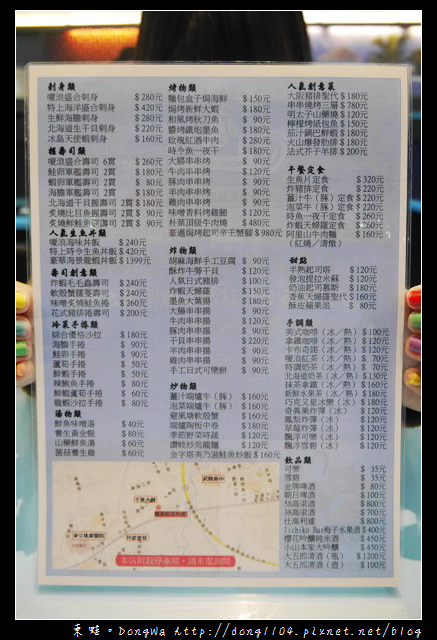 刺身類
嚐浪盛合刺身 $280元
特上海洋盛合刺身 $420元
生鮮海膽刺身 $280元
北海道生干貝刺身 $220元
冰島天使蝦刺身 $160元
握壽司類
嚐浪盛合壽司 6貫 $260元
鮭卵軍艦壽司 2貫 $180元
蝦卵軍艦壽司 2貫 $80元
海膽軍艦壽司 2貫 $180元
北海道干貝握壽司 2貫 $180元
炙燒比目魚握壽司 2貫 $90元
炙燒鮮鮭魚壽司 2貫 $90元
人氣生魚丼類
嚐浪海味丼飯 $240元
特上時令生魚丼飯 $420元
豪華海景龍蝦丼飯 $1399元
壽司創意類
炸蝦毛毛蟲壽司 $240元
軟殼蟹羅蔓壽司 $240元
味噌炙燒鮭魚捲 $260元
花式豬排捲壽司 $180元
冷菜手捲類
綜合優格沙拉 $180元
海膽手捲 $90元
鮭卵手捲 $90元
蘆筍手捲 $50元
鮮蝦手捲 $60元
辣鮪魚手捲 $80元
鮮蝦蘆筍手捲 $60元
龍蝦沙拉手捲 $80元
湯物類
鮮魚味噌湯 $40元
養生黃金蜆 $80元
山藥鮮魚湯 $60元
菌菇養生雞 $60元
烤物類
麵包盒子焗海鮮 $150元
焗烤新鮮大蝦 $180元
和風烤秋刀魚 $90元
醬烤鐵炮墨魚 $180元
玫瑰紅酒牛肉 $280元
時令魚一夜干 $180元
大腸串串烤 $90元
牛肉串串烤 $120元
豚肉串串烤 $90元
羊肉串串烤 $90元
雞肉串串烤 $90元
味噌香料烤雞腿 $120元
料董頂級牛肉燒 $480元
豪邁焗烤起司帝王蟹腳 $980元
炸物類
胡麻海鮮手工豆腐 $90元
酥炸牛蒡干貝 $120元
人氣日式豬排 $100元
炸蝦天婦羅 $150元
墨魚大蕾揚 $180元
大腸串串揚 $90元
牛肉串串揚 $120元
豚肉串串揚 $90元
干貝串串揚 $220元
羊肉串串揚 $90元
雞肉串串揚 $90元
手工日式可樂餅 $90元
炒物類
薑汁端爐牛（豚） $160元
泡菜端爐牛（豚） $160元
避風塘軟殼蟹 $160元
端爐陶板中卷 $180元
季節野菜時蔬 $120元
讚岐炒烏龍麵 $120元
金字塔美乃滋鮭魚炒飯 $160元
人氣創意菜
大阪豬排聖代 $180元
串串燒烤三層 $780元
明太子山藥燒 $120元
檸檬烤紙包魚 $150元
茄汁鍋巴鮮蝦 $180元
火山爆發肋排 $180元
法式芥子羊排 $200元
午餐定食
生魚片定食 $320元
炸豬排定食 $220元
薑汁牛（豚）定食 $220元
泡菜牛（豚）定食 $220元
時魚一夜干定食 $260元
炸蝦天婦羅定食 $260元
阿里山牛肉麵 $160元
（紅燒／清燉）
甜點
半熟起司塔 $120元
發泡提拉米蘇 $120元
奶油起司慕斯 $180元
香蕉天婦羅聖代 $160元
酥皮蘋果派 $180元
手調類
美式咖啡（冰／熱） $100元
拿鐵咖啡（冰／熱） $120元
卡布奇諾（冰／熱） $120元
嚐浪紅茶（冰／熱） $70元
特調奶茶（冰／熱） $70元
北海道奶茶（冰／熱） $130元
抹茶拿鐵（冰／熱） $160元
新鮮水果茶（冰／熱） $180元
巧克艾星冰樂（冰） $180元
奇異果炸彈（冰） $120元
鳳梨炸彈（冰） $120元
草莓炸彈（冰） $120元
飄浮可樂（冰） $120元
飄浮雪碧（冰） $120元
飲品類
可樂 $35元
雪碧 $35元
金牌啤酒 $80元
朝日啤酒 $100元
58高粱酒 $800元
38高粱酒 $700元
仕高利達 $800元
lichiko Bar梅子水果酒 $400元
櫻花吟釀純米酒 $450元
小山本家大吟釀 $450元
大五郎清酒（瓶） $1200元
大五郎清酒（壺） $100元
本店附設停車場，請來電詢問
東蛙。DongWa http://dong1104.pixnet.net/blog